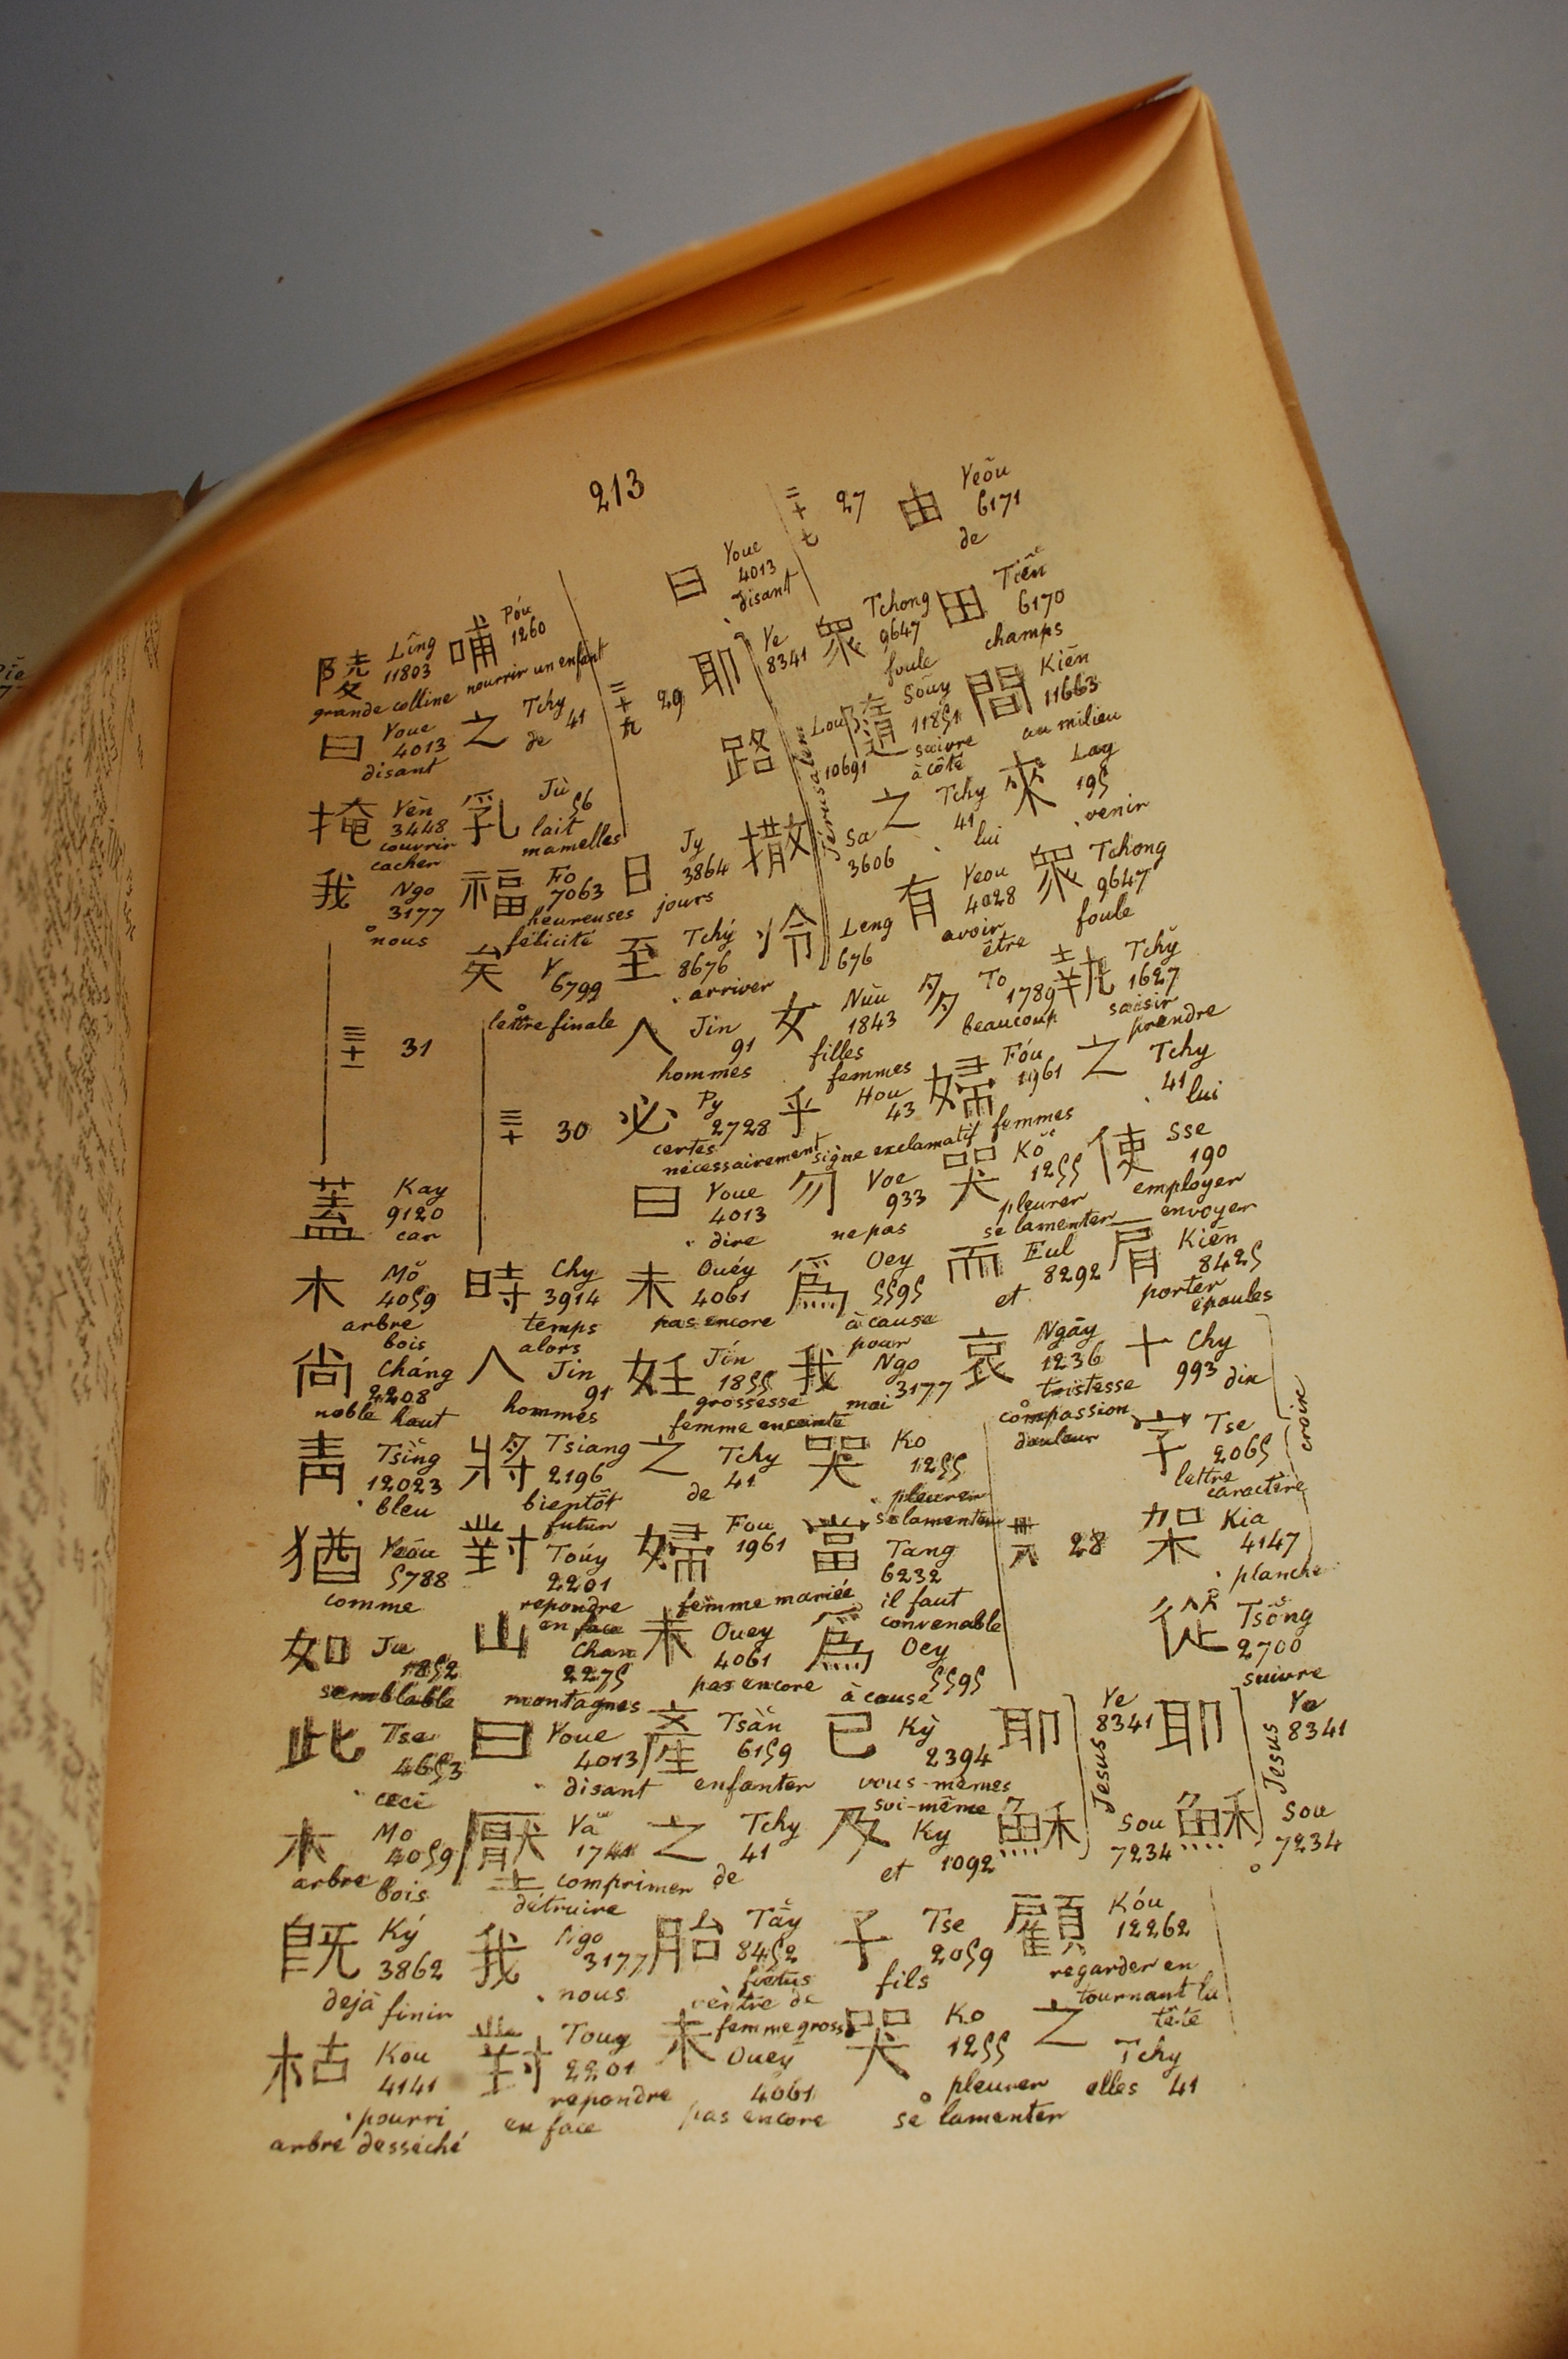 213
二十七 27
由 Yeōu 6171 de
田 Tiēn 6170 champs
間 Kiēn 11663 au milieu
來 Lay 195 venir
眾 Tchong 9647 foule
執 Tchy 1627 saisir prendre
之 Tchy 41 lui
使 Sse 190 employer envoyer
肩 Kiēn 8425 porter épaules
十 Chy 993 dix
字 Tse 2065 lettre caractère
架 Kia 4147 planche
croix
從 Tsōng 2700 suivre
耶 Ye 8341
穌 Sou 7234
Jesus
眾 Tchong 9647 foule
隨 Soūy 11851 suivre à côté
之 Tchy 41 lui
有 Yeou 4028 avoir être
多 To 1789 beaucoup
婦 Fóu 1961 femmes
哭 Kŏ 1255 pleurer se lamenter
而 Eul 8292 et
哀 Ngāy 1236 tristesse compassion douleur
二十八 28
耶 Ye 8341
穌 Sou 7234
Jesus
顧 Kóu 12262 regarder en tournant la tête
之 Tchy elles 41
曰 Youe 4013 disant
耶 Ye 8341
路 Lou 10691
撒 Sa 3606
冷 Leng 676
Jérusalem
女 Nùu 1843 filles femmes
乎 Hou 43 signe exclamatif
勿 Voe 933 ne pas
爲 Oey 5595 à cause pour
我 Ngo 3177 moi
哭 Ko 1255 pleurer se lamenter
當 Tang 6232 il faut convenable
爲 Oey 5595 à cause
己 Kỳ 2394 vous-mêmes soi-même
及 Ky 1092 et
子 Tse 2059 fils
哭 Ko 1255 pleurer se lamenter
二十九 29
日 Jy 3864 jours
至 Tchý 8676 arriver
人 Jin 91 hommes
必 Py 2728 certes nécessairement
曰 Youe 4013 dire
未 Ouéy 4061 pas encore
妊 Jín 1855 grossesse femme enceinte
之 Tchy 41 de
婦 Fou 1961 femme mariée
未 Ouey 4061 pas encore
產 Tsàn 6159 enfanter
之 Tchy 41 de
胎 Tāy 8452 fœtus ventre de femme grosse
未 Ouey 4061 pas encore
哺 Póu 1260 nourrir un enfant
之 Tchy 41 de
乳 Jù 56 lait mamelles
福 Fo 7063 heureuses félicité
矣 Y 6799 lettre finale
三十 30
時 Chy 3914 temps alors
人 Jin 91 hommes
將 Tsiang 2196 bientôt futur
對 Toúy 2201 repondre en face
山 Chan 2275 montagnes
曰 Youe 4013 disant
壓 Yă 1741 comprimer détruire
我 Ngo 3177 nous
對 Touy 2201 repondre en face
陵 Lîng 11803 grande colline
曰 Youe 4013 disant
掩 Yèn 3448 couvrir cacher
我 Ngo 3177 nous
三十一 31
蓋 Kay 9120 car
木 Mŏ 4059 arbre bois
尚 Cháng 2208 noble haut
青 Tsīng 12023 bleu
猶 Yeôu 5788 comme
如 Ju 1852 semblable
此 Tse 4653 ceci
木 Mo 4059 arbre bois
既 Ký 3862 dejà finir
枯 Kou 4141 pourri arbre desséché